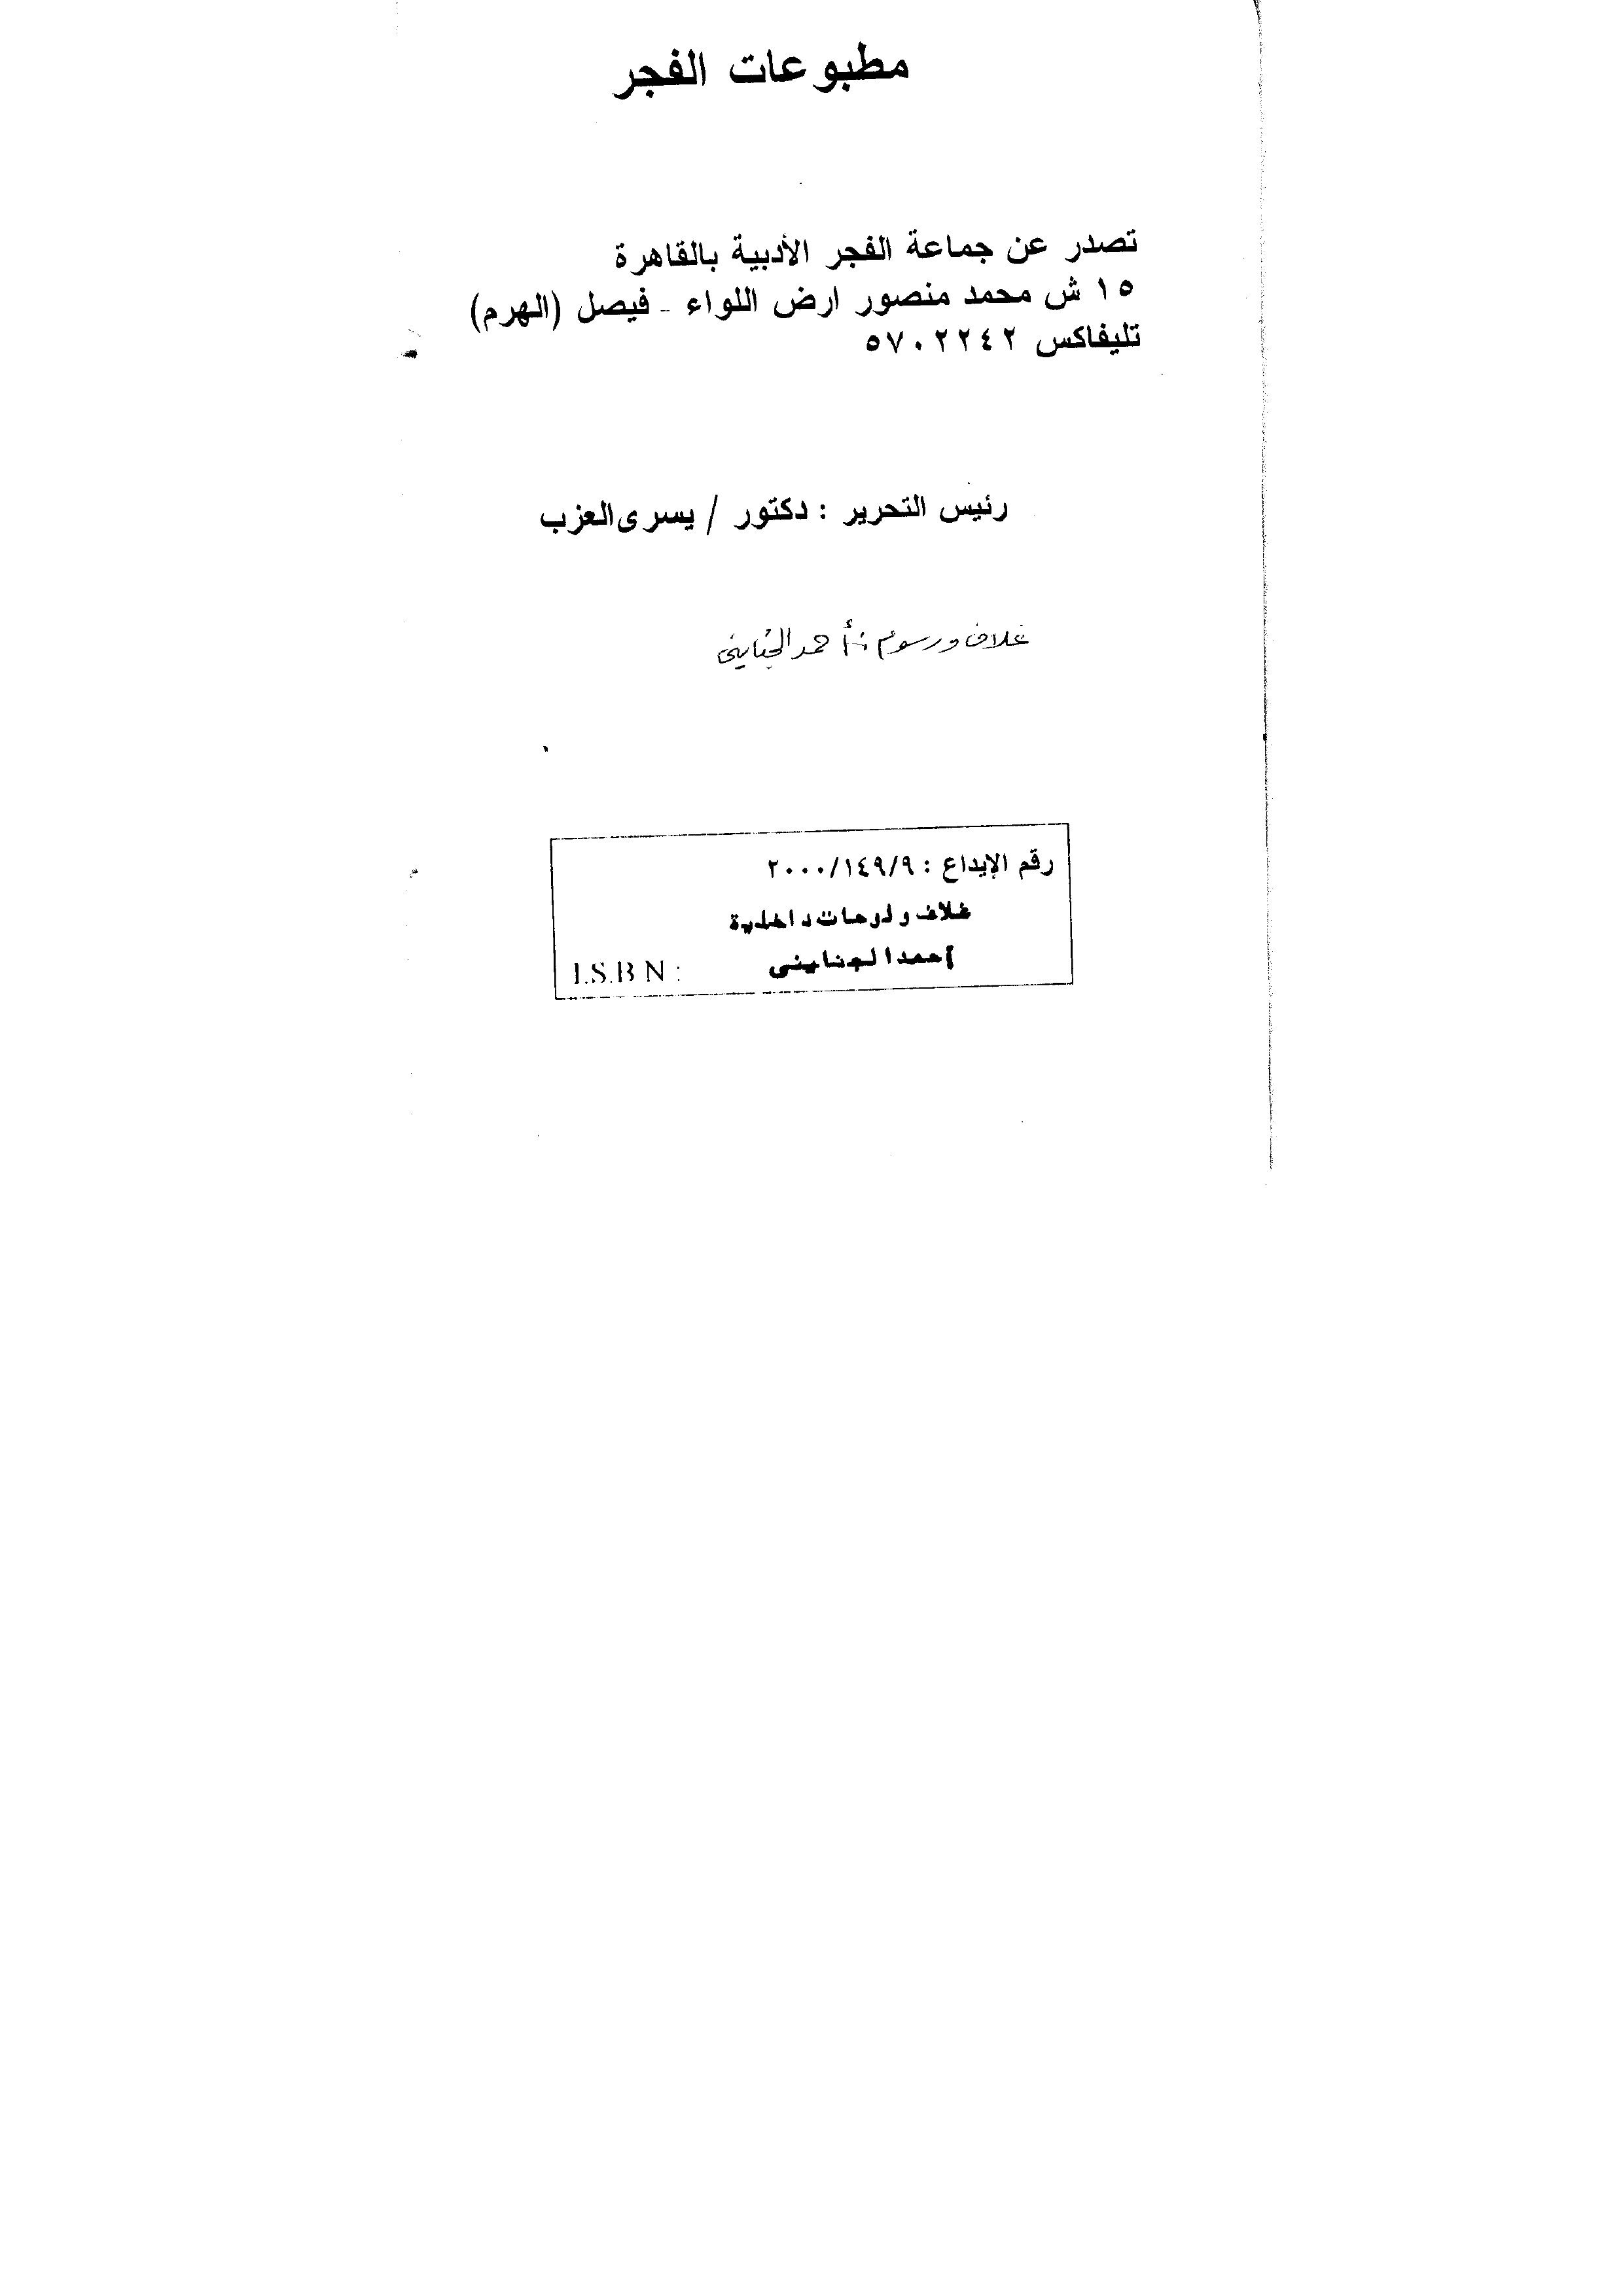 مطبوعات الفجر
تصدر عن جماعة الفجر الأدبية بالقاهرة
١٥ ش محمد منصور ارض اللواء - فيصل (الهرم)
تليفاكس ٥٧٠٢٢٤٢
رئيس التحرير : دكتور / يسرى العزب
غلاف ورسوم : أحمد الجناينى
رقم الإيداع : ٢٠٠٠/١٤٩/٩
غلاف ولوحات داخلية
أحمد الجناينى
I.S.B N :